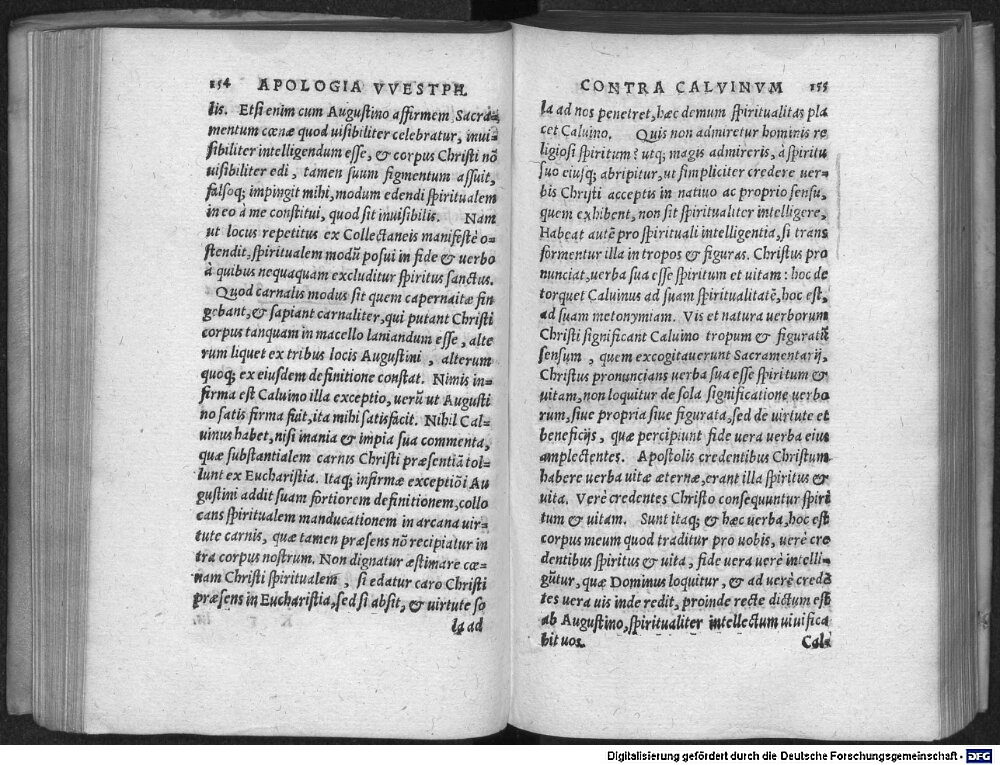 154 APOLOGIA VVESTPH.
lis. Etsi enim cum Augustino affirmem Sacra-
mentum cœnæ quod uisibiliter celebratur, inui-
sibiliter intelligendum esse, & corpus Christi nō
uisibiliter edi, tamen suum figmentum assuit,
falsoq; impingit mihi, modum edendi spiritualem
in eo à me constitui, quod sit inuisibilis. Nam
ut locus repetitus ex Collectaneis manifestè o-
stendit, spiritualem modū posui in fide & uerbo
à quibus nequaquam excluditur spiritus sanctus.
Quod carnalis modus sit quem capernaitæ fin
gebant, & sapiant carnaliter, qui putant Christi
corpus tanquam in macello laniandum esse, alte
rum liquet ex tribus locis Augustini, alterum
quoq; ex eiusdem definitione constat. Nimis in-
firma est Caluino illa exceptio, uerū ut Augusti
no satis firma fuit, ita mihi satisfacit. Nihil Cal-
uinus habet, nisi inania & impia sua commenta,
quæ substantialem carnis Christi præsentiā tol-
lunt ex Eucharistia. Itaq; infirmæ exceptiōi Au
gustini addit suam fortiorem definitionem, collo
cans spiritualem manducationem in arcana uir-
tute carnis, quæ tamen præsens nō recipiatur in
tra corpus nostrum. Non dignatur æstimare cœ-
nam Christi spiritualem, si edatur caro Christi
præsens in Eucharistia, sed si absit, & uirtute so
la ad
CONTRA CALVINVM 155
la ad nos penetret, hæc demum spiritualitas pla
cet Caluino. Quis non admiretur hominis re
ligiosi spiritum? utq; magis admireris, à spiritu
suo eiusq; abripitur, ut simpliciter credere uer-
bis Christi acceptis in natiuo ac proprio sensu,
quem exhibent, non sit spiritualiter intelligere,
Habeat autē pro spirituali intelligentia, si trans
formentur illa in tropos & figuras. Christus pro
nunciat, uerba sua esse spiritum et uitam: hoc de
torquet Caluinus ad suam spiritualitatē, hoc est,
ad suam metonymiam. Vis et natura uerborum
Christi significant Caluino tropum & figuratū
sensum, quem excogitauerunt Sacramentarij,
Christus pronuncians uerba sua esse spiritum &
uitam, non loquitur de sola significatione uerbo
rum, siue propria siue figurata, sed de uirtute et
beneficijs, quæ percipiunt fide uera uerba eius
amplectentes. Apostolis credentibus Christum
habere uerba uitæ æternæ, erant illa spiritus &
uita. Verè credentes Christo consequuntur spiri
tum & uitam. Sunt itaq; & hæc uerba, hoc est
corpus meum quod traditur pro uobis, uerè cre
dentibus spiritus & uita, fide uera uerè intelli-
gūtur, quæ Dominus loquitur, & ad uerè credē
tes uera uis inde redit, proinde recte dictum est
ab Augustino, spiritualiter intellectum uiuifica
bit uos.
Cal-
Digitalisierung gefördert durch die Deutsche Forschungsgemeinschaft - DFG